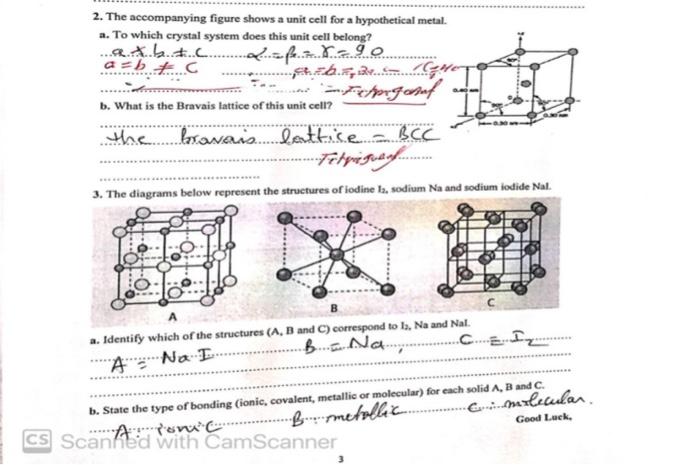 2. The accompanying figure shows a unit cell for a hypothetical metal.
a. To which crystal system does this unit cell belong?
a ≠ b ≠ c α = β = γ = 90
a = b ≠ c
Tetragonal
0.40 nm
90°
0.30 nm
0.30 nm
b. What is the Bravais lattice of this unit cell?
the bravais lattice = BCC
3. The diagrams below represent the structures of iodine I₂, sodium Na and sodium iodide NaI.
A
B
C
a. Identify which of the structures (A, B and C) correspond to I₂, Na and NaI.
A = NaI B = Na, C = I₂
b. State the type of bonding (ionic, covalent, metallic or molecular) for each solid A, B and C.
A: ionic B: metallic C: molecular.
Good Luck,
CS Scanned with CamScanner
3